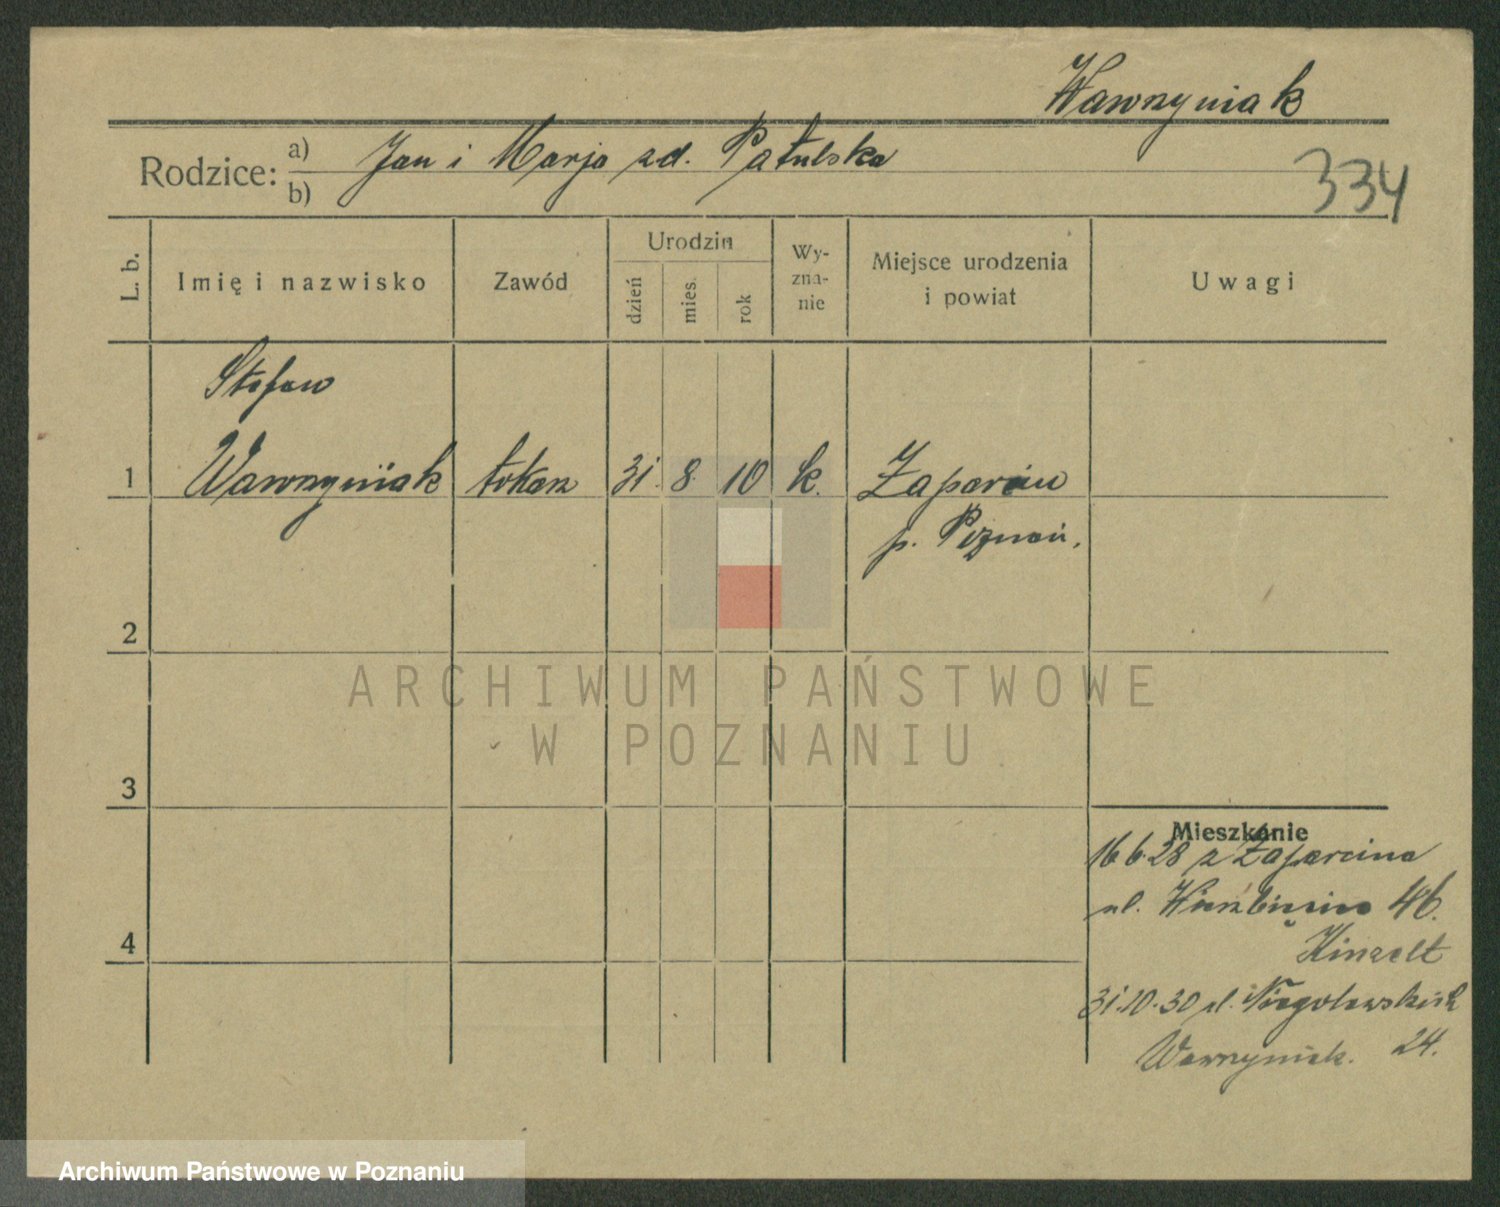 Wawrzyniak
Rodzice: a) Jan i Marja zd. Patulska
b)
334
L. b.
Imię i nazwisko
Zawód
Urodzin
dzień
mies.
rok
Wy-
zna-
nie
Miejsce urodzenia
i powiat
Uwagi
Stefan
1 Wawrzyniak tokarz 31. 8. 10 k. Żaparcin
p. Poznań.
2
ARCHIWUM PAŃSTWOWE
W POZNANIU
3
Mieszkanie
16 6 28 z Żaparcina
ul. Wierzbięcice 46.
Kinzelt
4
31.10.30 ul. Niegolewskich
Wawrzyniak. 24.
Archiwum Państwowe w Poznaniu